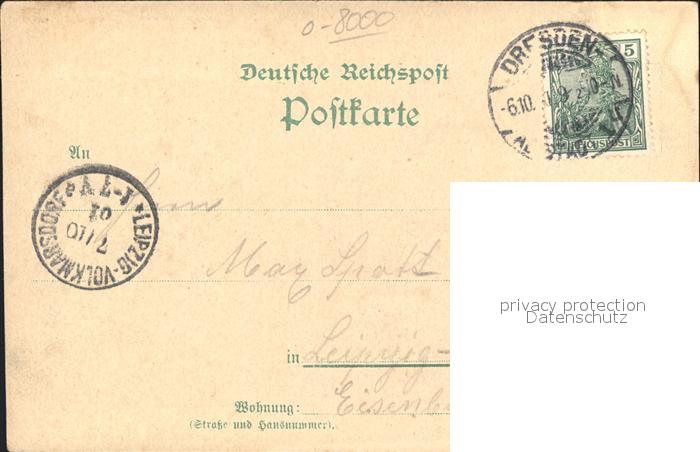 0-8000
Deutsche Reichspost
Postkarte
DRESDEN
-6.10.
5
REICHSPOST
An
LEIPZIG-VOLKMARSDORF
7/10
01
Max Spott
in Leipzig-
Wohnung:
(Straße und Hausnummer).
privacy protection
Datenschutz